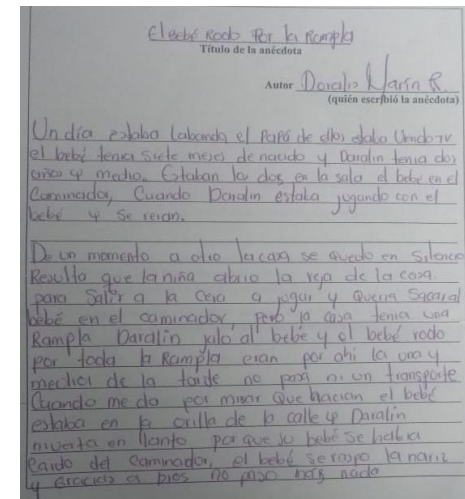 El bebé Rodo Por la Rampla
Título de la anécdota
Autor Doralis Marín R.
(quién escribió la anécdota)
Un día estaba labando el Papá de ellos estaba Viendo TV
el bebé tenia Siete meses de nacido y Daralin tenia dos
años y medio. Estaban los dos en la sala el bebé en el
Caminador, Cuando Daralin estaba jugando con el
bebé y Se reian.
De un momento a otro la casa se quedo en Silencio
Resulta que la niña abrio la reja de la casa
para Salir a la Cera a jugar y Queria Sacar al
bebé en el caminador, Pero la casa tenia una
Rampla Daralin jalo al bebé y el bebé rodo
por toda la Rampla eran por ahi la una y
media de la tarde no paso ni un transporte
Cuando me do por mirar Que hacian el bebé
estaba en la orilla de la calle y Daralin
muerta en llanto por que su bebé Se habia
caido del Caminador, el bebé se raspo la nariz
y gracias a Dios no paso más nada